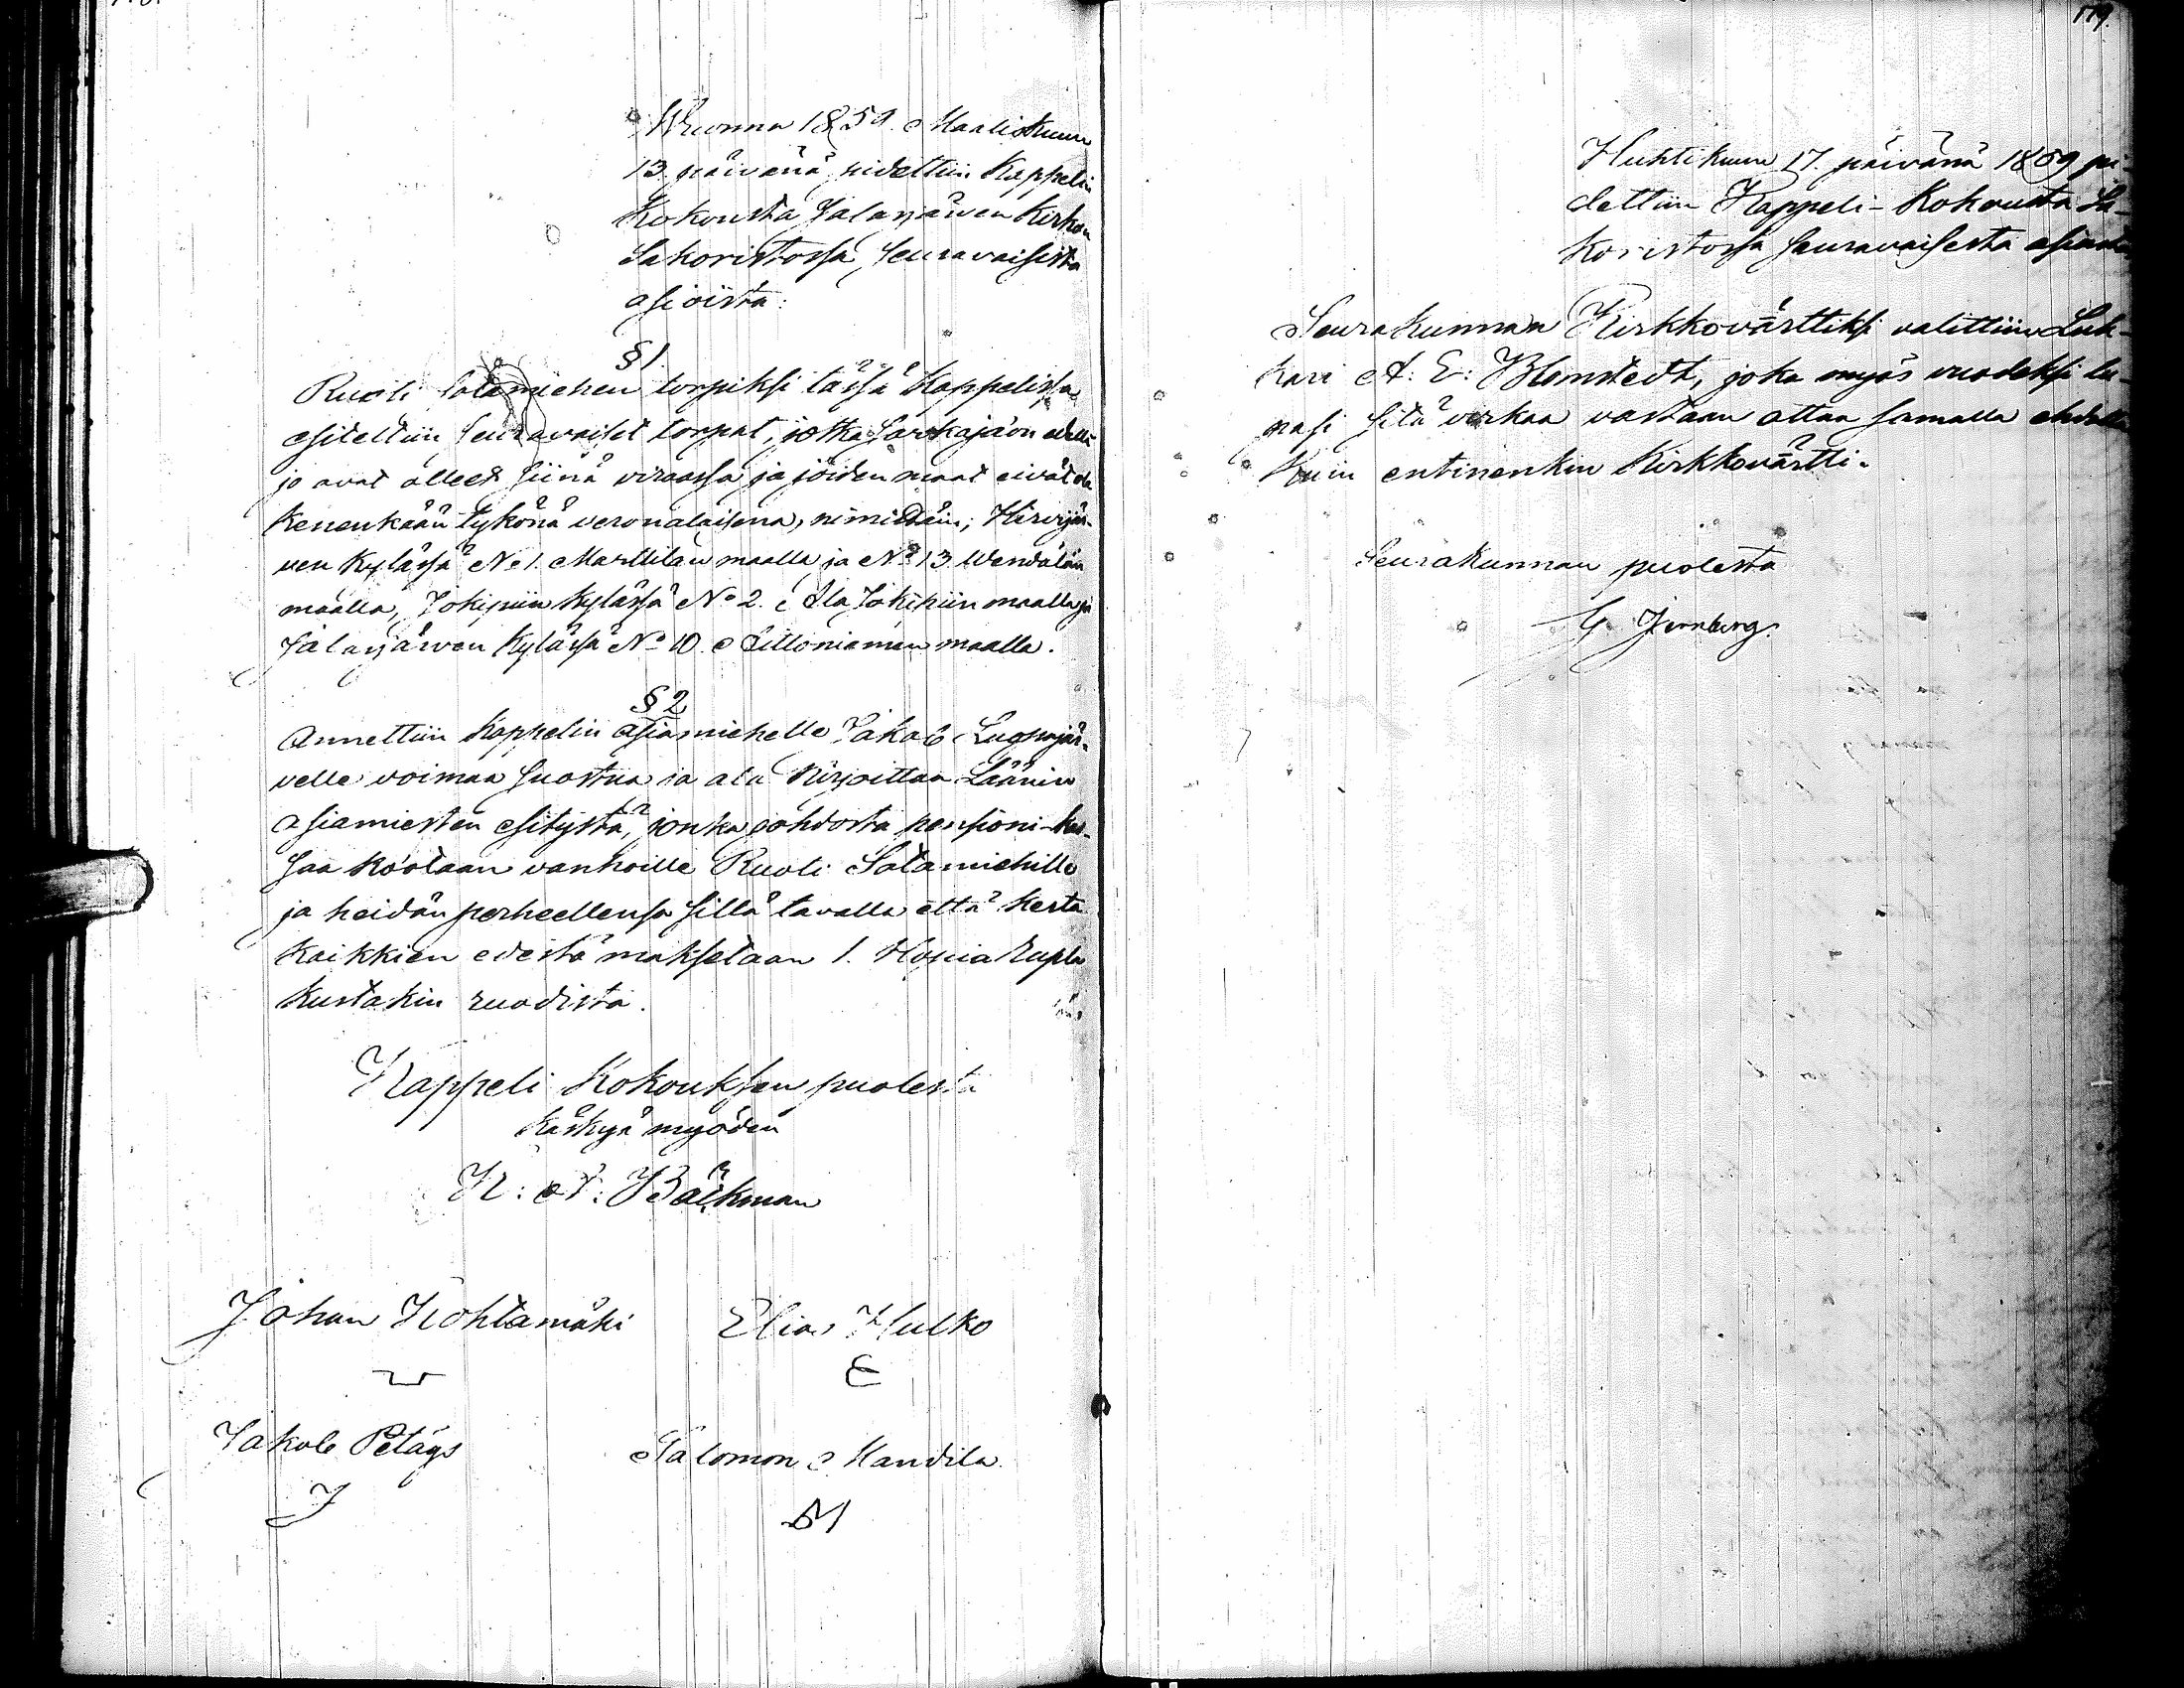 Wuonna 1859. Maaliskuun
13. päivänä pidettiin Kappelin
Kokousta Jalasjärven Kirkon
Sakoristossa, seuravaisista
asioista:
§ 1.
Ruoti Sotamiehen torpiksi tässä Kappelissa
esiteltiin seuravaiset torpat, jotka
jo ovat olleet siinä virassa ja joiden maat eivät ole
Kenenkään tykönä veronalaisena, nimittäin; Hirvijär-
ven Kylässä No 1. Marttilan maalla ja No 13. Wendälän
maalla, Jokipiin Kylässä No 2. Ala Jokipiin maalla ja
Jalasjärven Kylässä No 10. maalla.
§ 2
Annettiin Kappelin asiamiehelle Jakob Luopajär-
velle voimaa suostua ja ala Kirjoittaa Läänin
asiamiesten esitystä, jonka johdosta pensioni-kas-
saa Kootaan vanhoille Ruoti Sotamiehille
ja heidän perheellensä sillä tavalla että Kerta
Kaikkien edestä maksetaan 1. Hopia Rupla
Kustakin ruodista.
Kappeli Kokouksen puolesta
Käskyä myöden
K: A: Bäckman
Johan Kohtamäki Elias Hulko
E
Jakob Petäys Salomon Mandila
J SM
179.
Huhtikuun 17. päivänä 1859 pi-
dettiin Kappeli-Kokousta Sa-
Koristossa seuravaisesta asiasta
Seurakunnan Kirkkovärttiksi valittiin Luk-
kari A: E: Blomstedt, joka myös vuodeksi lu-
pasi sitä virkaa vastaan ottaa samalla ehdolla
Kuin entinenkin Kirkkovärtti.
Seurakunnan puolesta
G Jernberg.